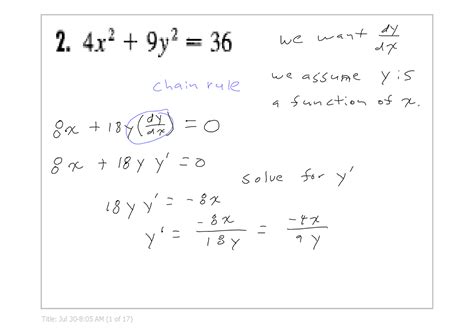 2. 4x² + 9y² = 36
we want dy/dx
chain rule
we assume y is
a function of x.
8x + 18y(dy/dx) = 0
8x + 18y y' = 0
solve for y'
18y y' = -8x
y' = -8x/18y = -4x/9y
Title: Jul 20-8:05 AM (1 of 17)